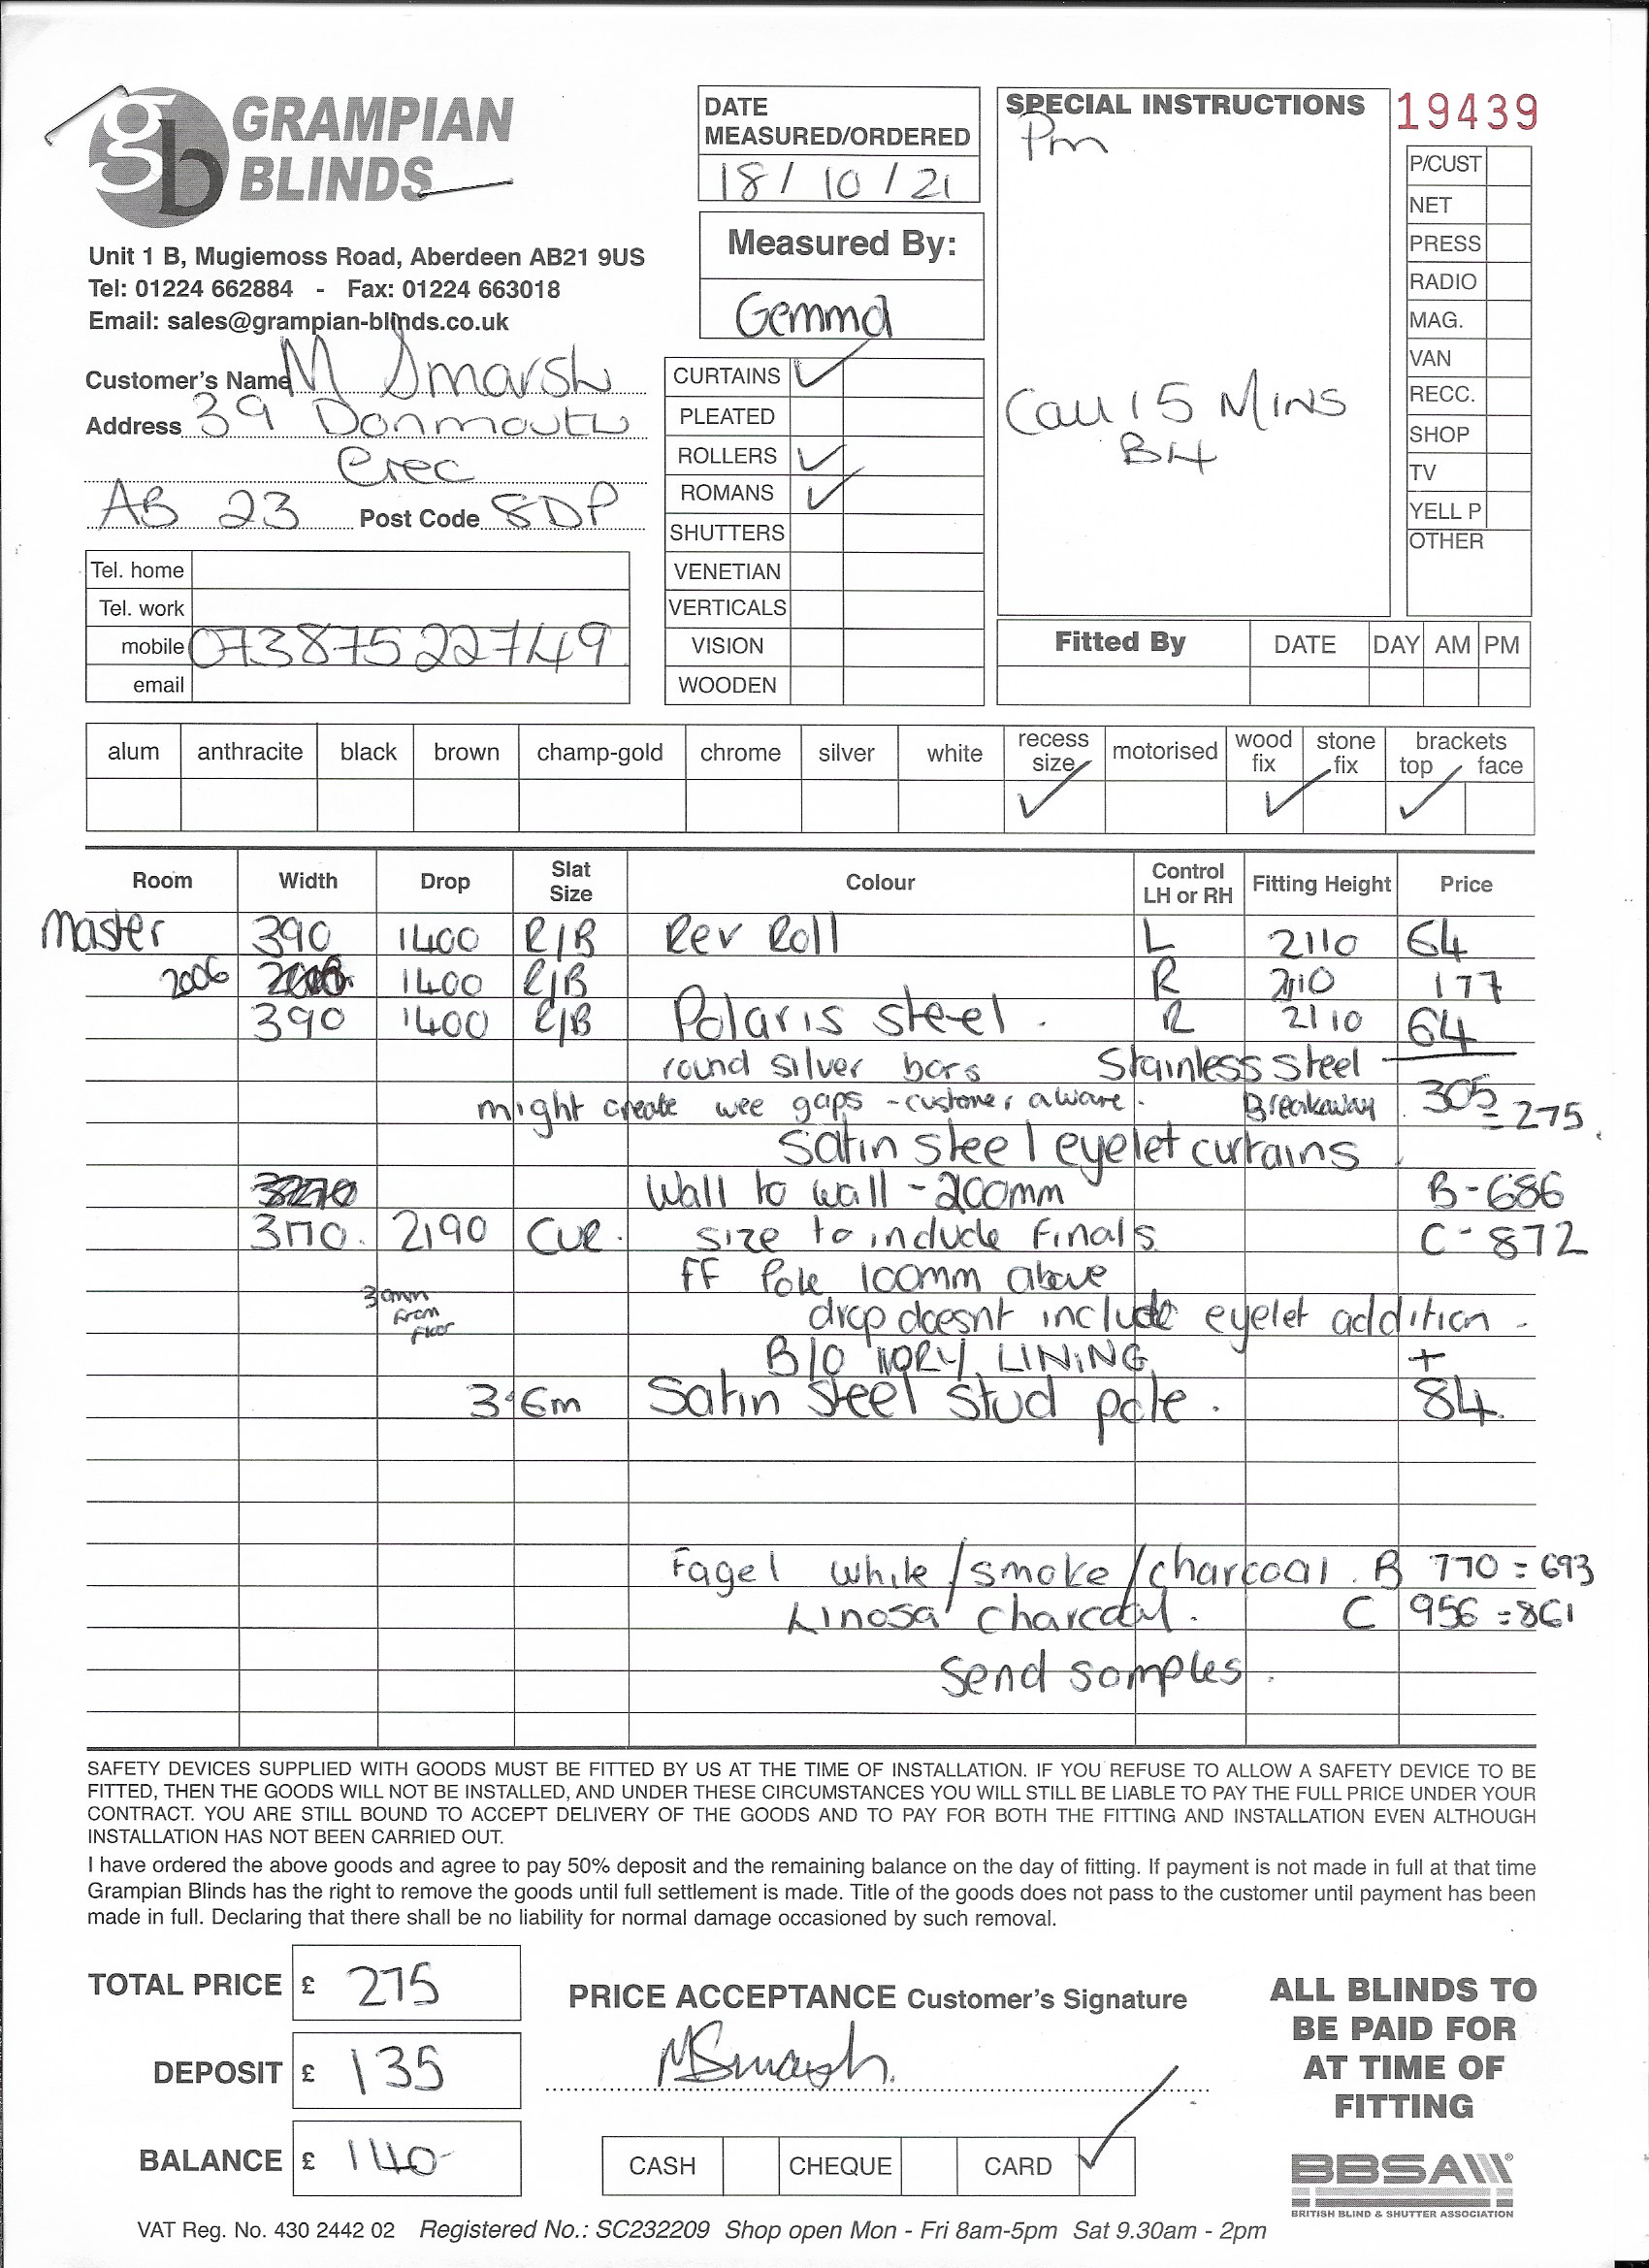 GRAMPIAN
BLINDS
Unit 1 B, Mugiemoss Road, Aberdeen AB21 9US
Tel: 01224 662884 - Fax: 01224 663018
Email: sales@grampian-blinds.co.uk
Customer's Name M Smarsh
Address 39 Donmouth
Crec
AB 23 Post Code 8DP
Tel. home
Tel. work
mobile 07387522749
email
DATE
MEASURED/ORDERED
18/10/21
Measured By:
Gemma
CURTAINS ✓
PLEATED
ROLLERS ✓
ROMANS ✓
SHUTTERS
VENETIAN
VERTICALS
VISION
WOODEN
SPECIAL INSTRUCTIONS
Pm
Call 15 MINS
B4
19439
P/CUST
NET
PRESS
RADIO
MAG.
VAN
RECC.
SHOP
TV
YELL P
OTHER
Fitted By DATE DAY AM PM
alum anthracite black brown champ-gold chrome silver white recess size motorised wood fix stone fix brackets top face
✓ ✓ ✓
Room Width Drop Slat Size Colour Control LH or RH Fitting Height Price
Master 390 1400 R/B Rev Roll L 2110 64
2006 1400 R/B R 2110 177
390 1400 R/B Polaris steel. R 2110 64
round silver bars Stainless Steel
might create wee gaps - customer aware. Breakaway 305 = 275
Satin steel eyelet curtains
Wall to wall - 200mm B - 686
3170. 2190 CUR. size to include finals C - 872
FF Pole 100mm above
30mm from floor
drop doesnt include eyelet addition -
B/O IVORY LINING +
3.6m Satin Steel Stud pole. 84
Fagel white/smoke/charcoal. B 770 = 693
Linosa charcoal. C 956 = 861
Send samples.
SAFETY DEVICES SUPPLIED WITH GOODS MUST BE FITTED BY US AT THE TIME OF INSTALLATION. IF YOU REFUSE TO ALLOW A SAFETY DEVICE TO BE
FITTED, THEN THE GOODS WILL NOT BE INSTALLED, AND UNDER THESE CIRCUMSTANCES YOU WILL STILL BE LIABLE TO PAY THE FULL PRICE UNDER YOUR
CONTRACT. YOU ARE STILL BOUND TO ACCEPT DELIVERY OF THE GOODS AND TO PAY FOR BOTH THE FITTING AND INSTALLATION EVEN ALTHOUGH
INSTALLATION HAS NOT BEEN CARRIED OUT.
I have ordered the above goods and agree to pay 50% deposit and the remaining balance on the day of fitting. If payment is not made in full at that time
Grampian Blinds has the right to remove the goods until full settlement is made. Title of the goods does not pass to the customer until payment has been
made in full. Declaring that there shall be no liability for normal damage occasioned by such removal.
TOTAL PRICE £ 275
DEPOSIT £ 135
BALANCE £ 140-
PRICE ACCEPTANCE Customer's Signature
MSmarsh.
CASH CHEQUE CARD ✓
ALL BLINDS TO
BE PAID FOR
AT TIME OF
FITTING
BBSA
BRITISH BLIND & SHUTTER ASSOCIATION
VAT Reg. No. 430 2442 02 Registered No.: SC232209 Shop open Mon - Fri 8am-5pm Sat 9.30am - 2pm